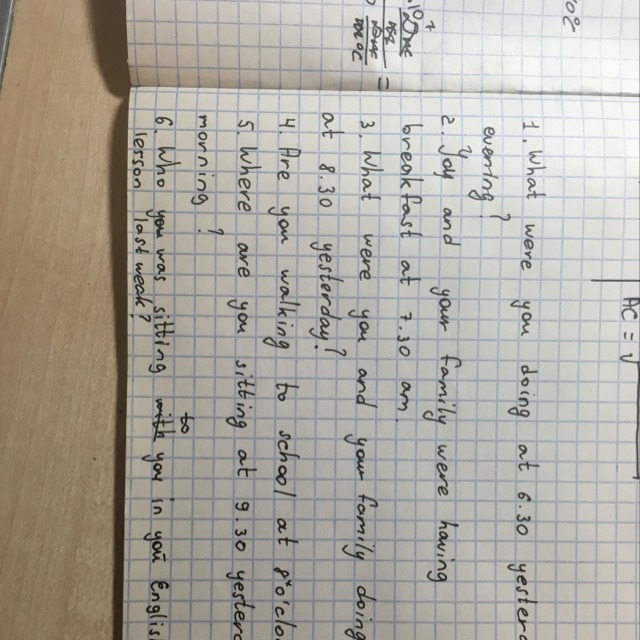 HC = √
1. What were you doing at 6.30
evening?
2. You and your family were having
breakfast at 7.30 am.
3. What were you and your family doing
at 8.30 yesterday?
4. Are you walking to school at
5. Where are you sitting at 9.30
morning?
to
6. Who you was sitting with you in you
lesson last week?